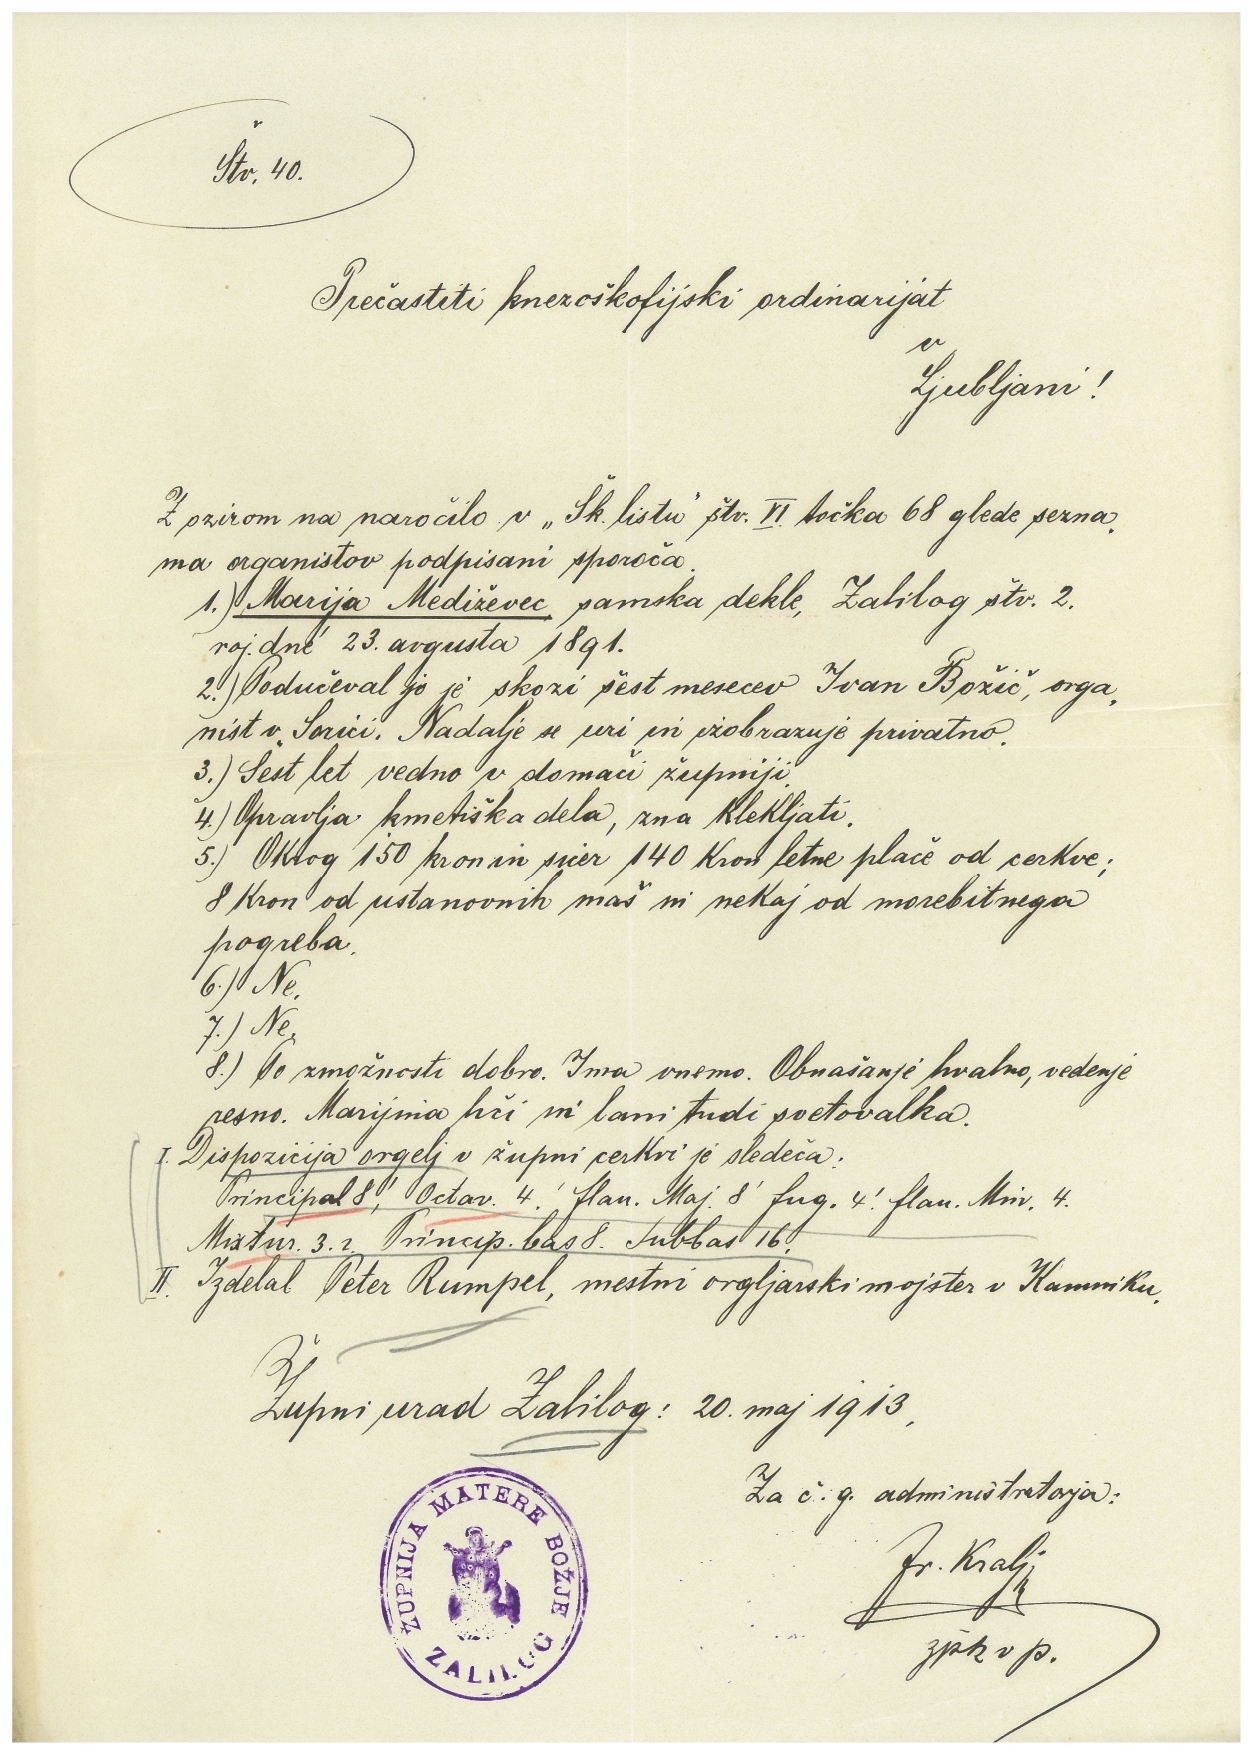 Štv. 40.
Prečastiti knezoškofijski ordinarijat
v
Ljubljani!
Z ozirom na naročilo v „Šk. listu" štv. VI. točka 68 glede sezna„
ma organistov podpisani sporoča.
1.) Marija Mediževec samska dekle, Zalilog štv. 2.
roj. dné 23. avgusta 1891.
2.) Podučeval jo je skozi šest mesecev Ivan Božič, orga„
nist v Sorici. Nadalje se uri in izobrazuje privatno.
3.) Šest let vedno v domači župniji.
4.) Opravlja kmetiška dela, zna klekljati.
5.) Okrog 150 kron in sicer 140 kron letne plače od cerkve;
8 kron od ustanovnih maš in nekaj od morebitnega
pogreba.
6.) Ne.
7.) Ne.
8.) Po zmožnosti dobro. Ima vnemo. Obnašanje hvalno, vedenje
resno. Marijina hči in lani tudi svetovalka.
I. Dispozicija orgelj v župni cerkvi je sledeča:
Principal 8', Octav. 4.' flau. Maj. 8' fug. 4'. flau. Min. 4.
Mixtur. 3. Princip. bas 8. Subbas 16.
II. Izdelal Peter Rumpel, mestni orgljarski mojster v Kamniku.
Župni urad Zalilog: 20. maj 1913.
Za č. g. administratorja:
Fr. Kralj
ŽUPNIJA MATERE BOŽJE
ZALILOG